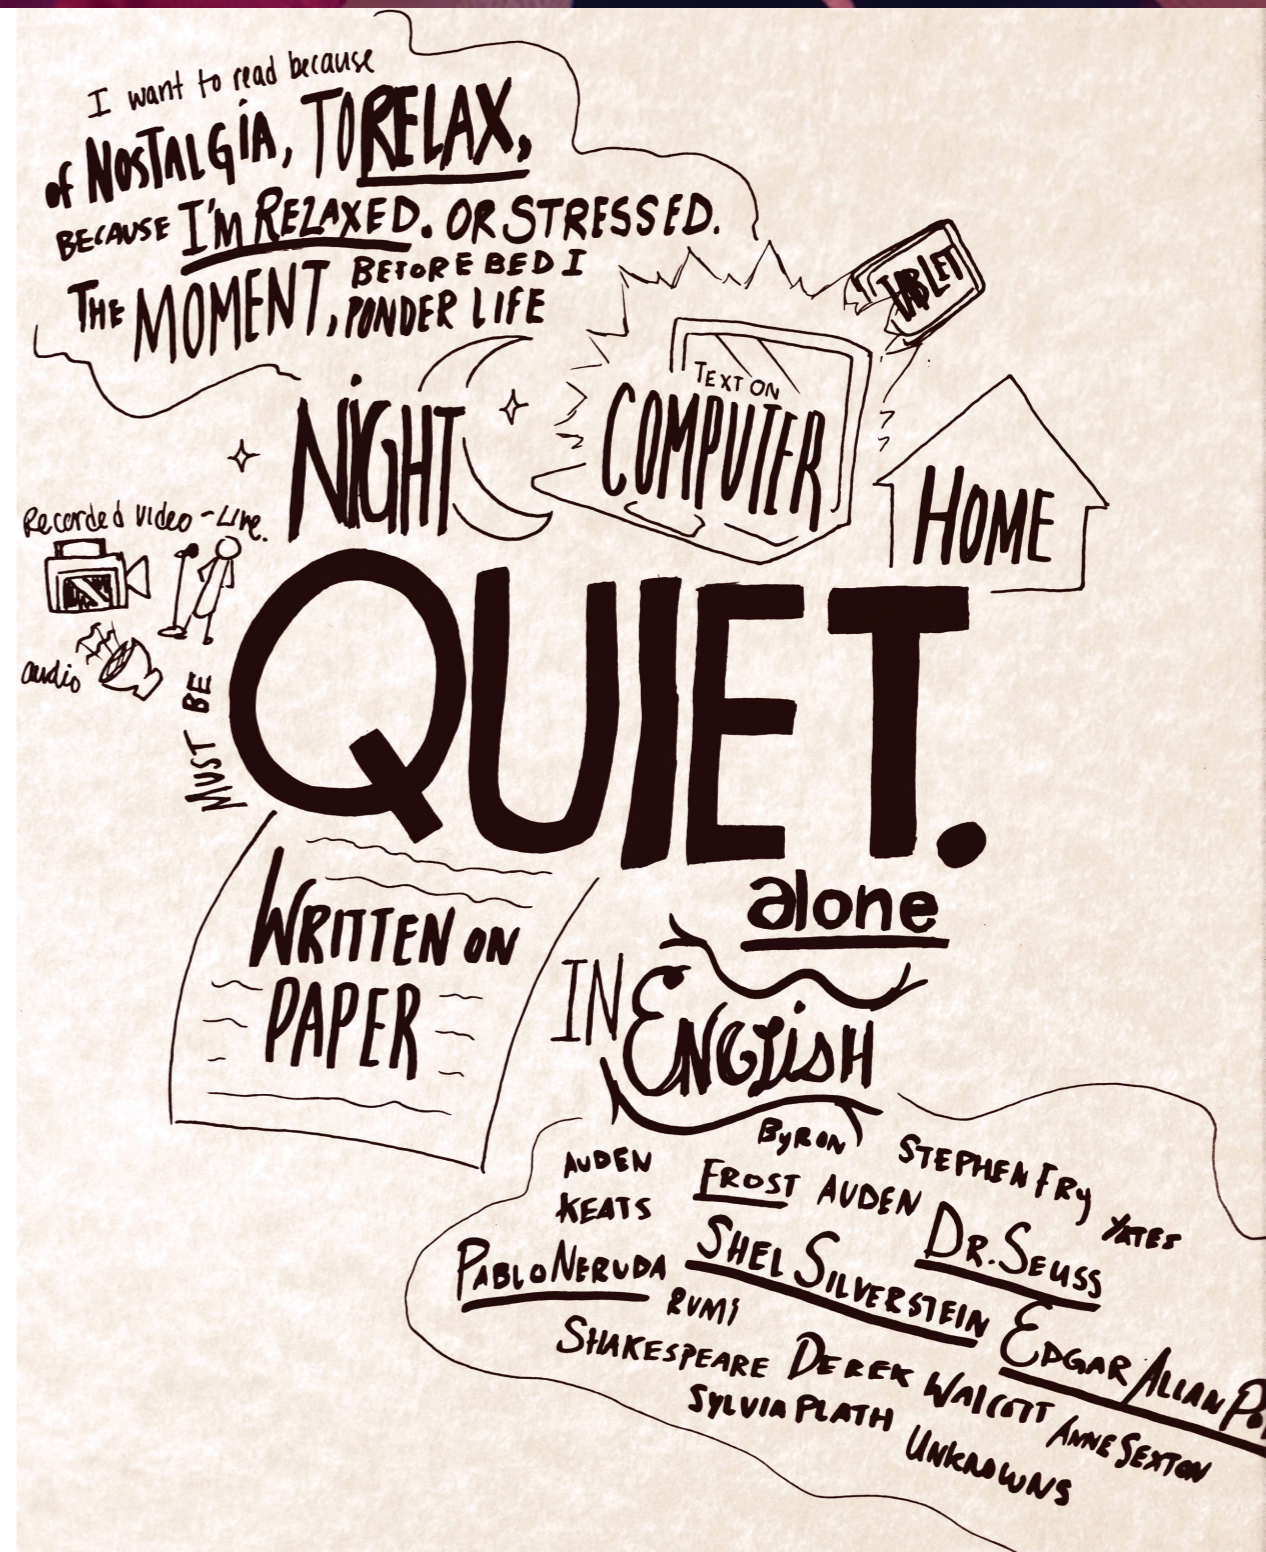 I want to read because
of NOSTALGIA, TO RELAX,
BECAUSE I'M RELAXED. OR STRESSED.
THE MOMENT, BEFORE BED I
PONDER LIFE
TABLET
TEXT ON
COMPUTER
NIGHT
HOME
Recorded video - Live.
audio
MUST BE
QUIET.
alone
WRITTEN ON
PAPER
IN ENGLISH
BYRON
STEPHEN FRY
AUDEN
FROST AUDEN
YATES
KEATS
DR. SEUSS
PABLO NERUDA
SHEL SILVERSTEIN
RUMI
EDGAR ALLAN PO
SHAKESPEARE DEREK WALCOTT
ANNE SEXTON
SYLVIA PLATH
UNKNOWNS